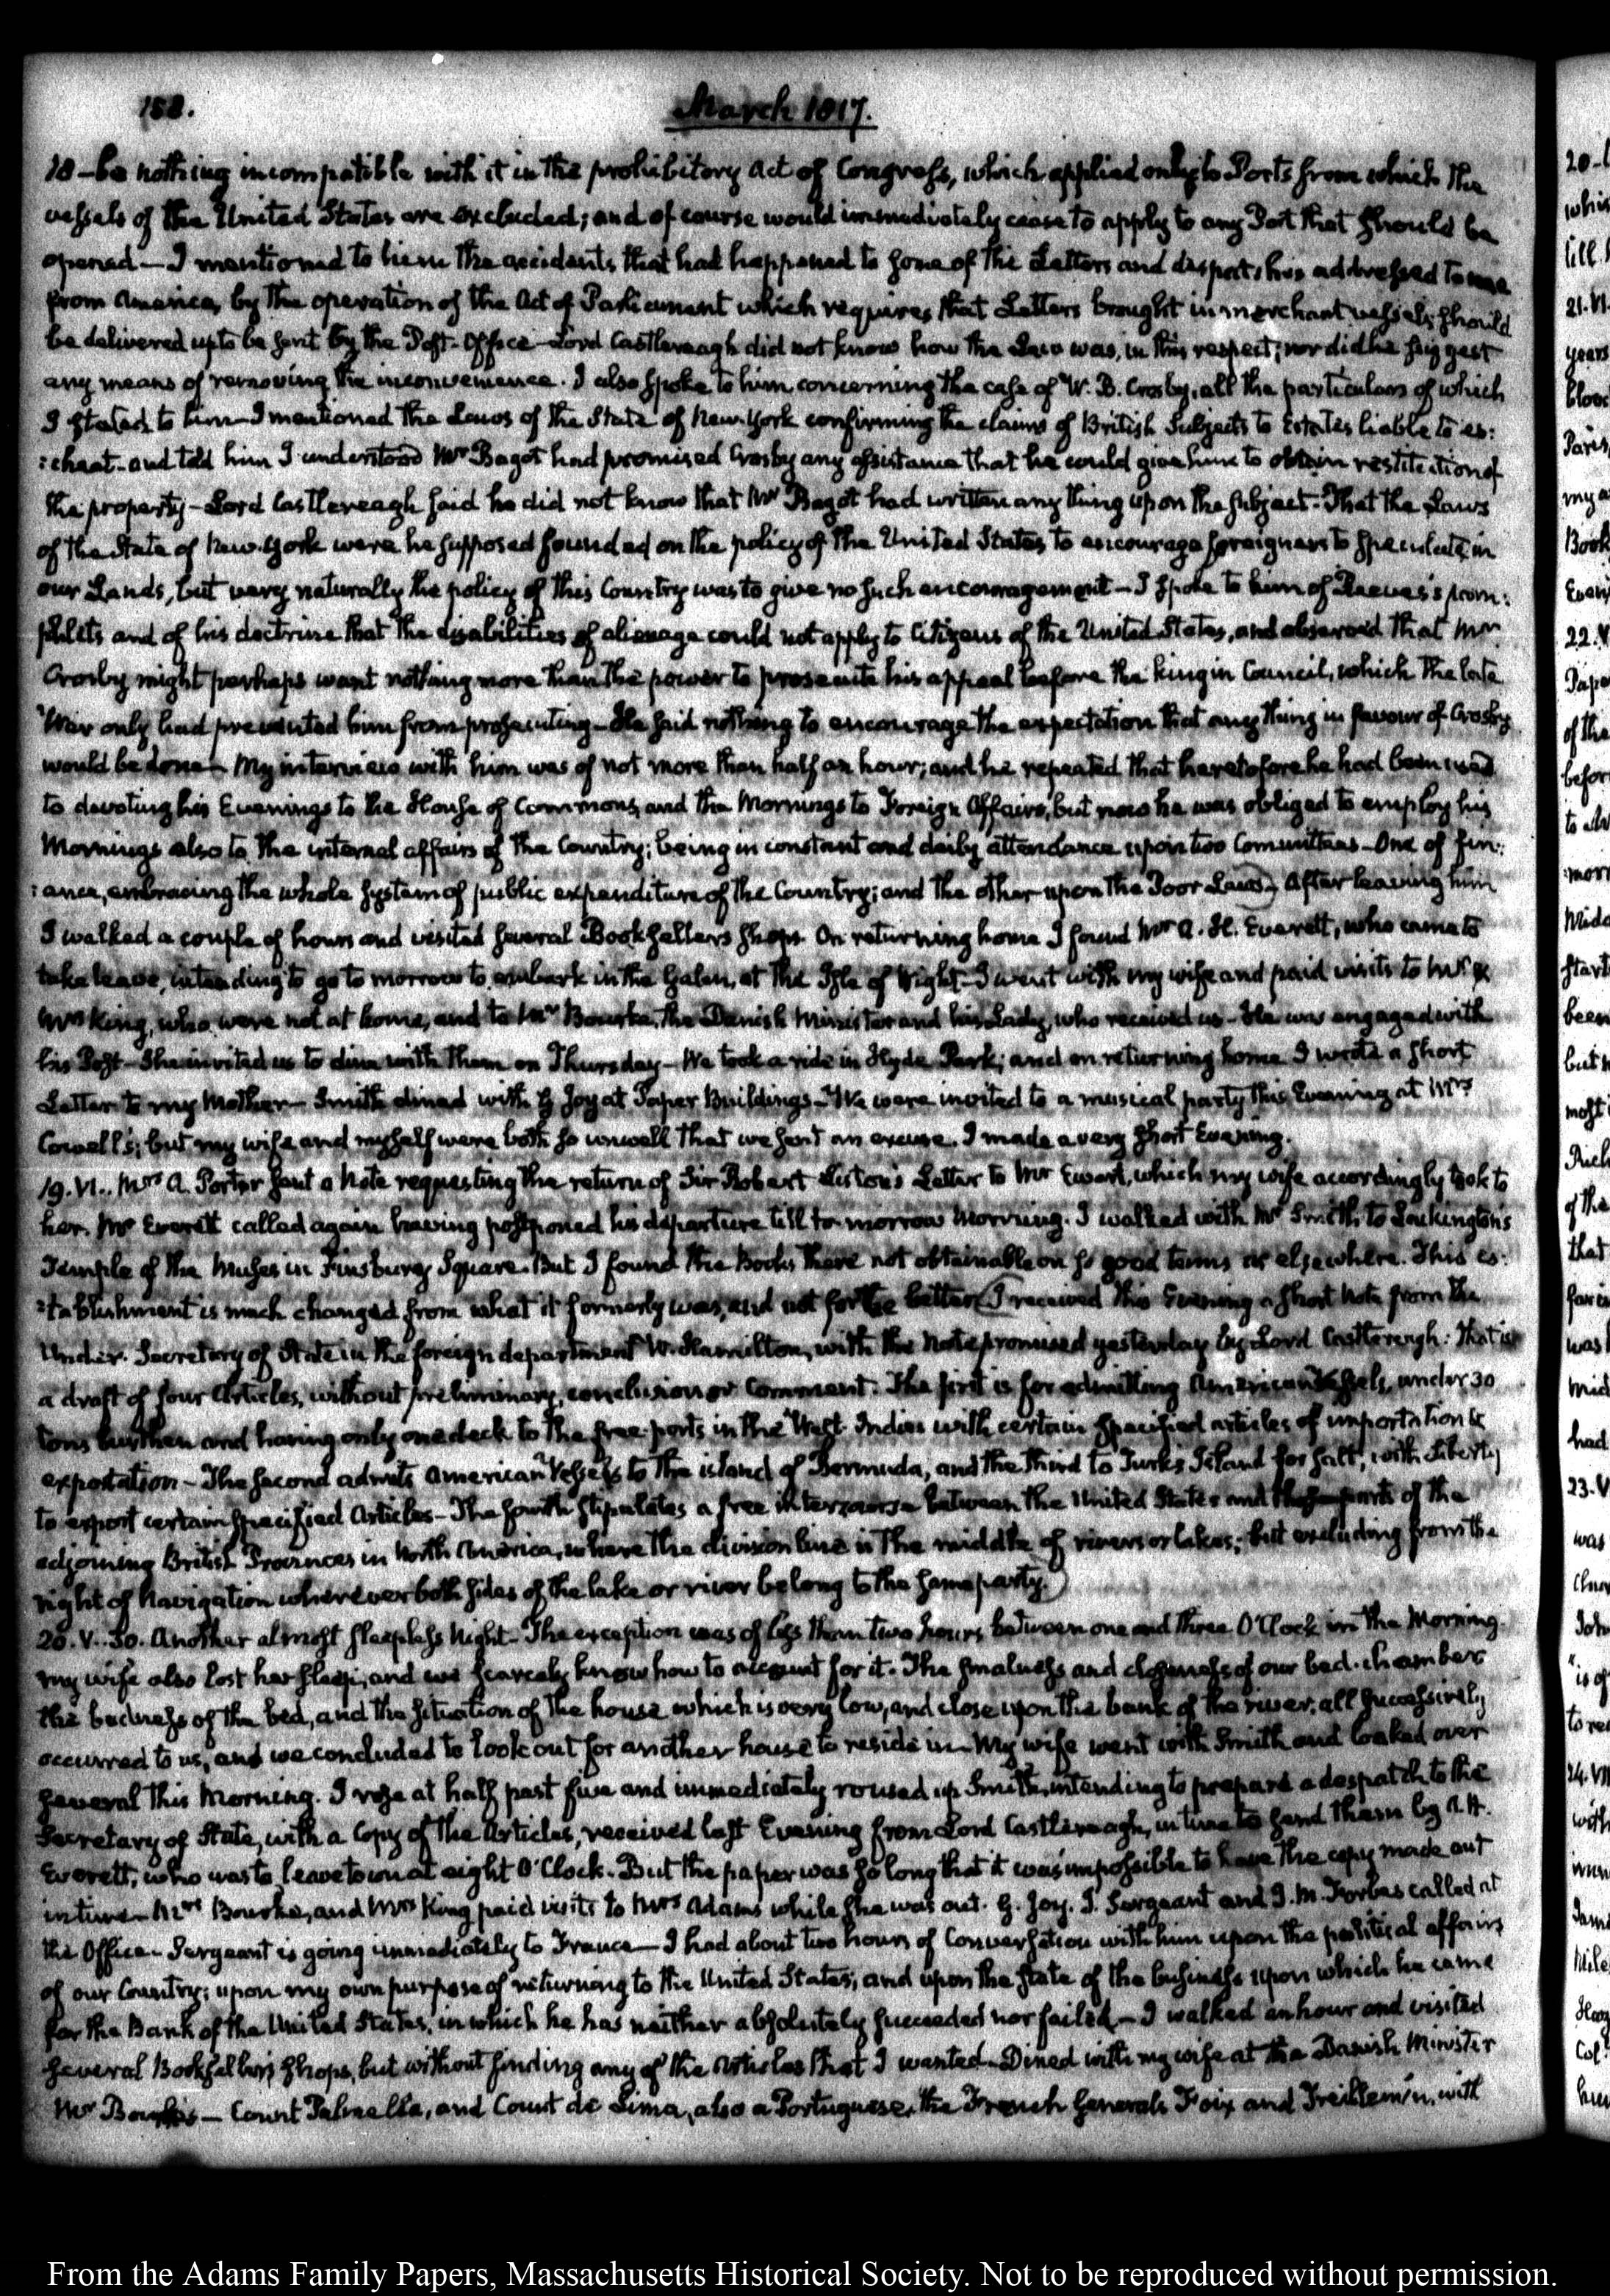 158.
March 1817.
18 — be nothing incompatible with it in the prohibitory Act of Congress, which applied only to Ports from which the
vessels of the United States are excluded; and of course would immediately cease to apply to any Port that should be
opened — I mentioned to him the accidents that had happened to some of the Letters and despatches addressed to me
from America, by the operation of the Act of Parliament which requires that Letters brought in merchant vessels should
be delivered up to be sent by the Post-Office — Lord Castlereagh did not know how the Law was, in this respect; nor did he suggest
any means of removing the inconvenience. I also spoke to him concerning the case of W. B. Crosby, all the particulars of which
I stated to him — I mentioned the Laws of the State of New-York confirming the claims of British Subjects to Estates liable to es:
:cheat — and told him I understood Mr Bagot had promised Crosby any assistance that he could give him to obtain restitution of
the property — Lord Castlereagh said he did not know that Mr Bagot had written any thing upon the subject — That the Laws
of the State of New-York were he supposed founded on the policy of the United States, to encourage foreigners to speculate in
our Lands, but very naturally the policy of this Country was to give no such encouragement — I spoke to him of Reeves's pam:
phlets and of his doctrine that the disabilities of alienage could not apply to Citizens of the United States, and observed that Mr
Crosby might perhaps want nothing more than the power to prosecute his appeal before the King in Council, which the late
War only had prevented him from prosecuting — He said nothing to encourage the expectation that any thing in favour of Crosby
would be done — My interview with him was of not more than half an hour; and he repeated that heretofore he had been used
to devoting his Evenings to the House of Commons, and the Mornings to Foreign Affairs, but now he was obliged to employ his
Mornings also to the internal affairs of the Country; being in constant and daily attendance upon two Committees — One of fin:
:ance, embracing the whole system of public expenditure of the Country; and the other upon the Poor Laws — After leaving him
I walked a couple of hours and visited several Booksellers shops. On returning home I found Mr A. H. Everett, who came to
take leave, intending to go to morrow to embark in the Galen, at the Isle of Wight — I went with my wife and paid visits to Mr &
Mrs King, who were not at home, and to Mr Bourke, the Danish Minister and his Lady, who received us — He was engaged with
his Post — She invited us to dine with them on Thursday — We took a ride in Hyde Park; and on returning home I wrote a short
Letter to my Mother — Smith dined with G Joy at Paper Buildings — We were invited to a musical party this Evening at Mrs
Cowell's; but my wife and myself were both so unwell that we sent an excuse. I made a very short Evening.
19. VI.. Mrs A. Porter sent a Note requesting the return of Sir Robert Liston's Letter to Mr Ewart, which my wife accordingly took to
her. Mr Everett called again having postponed his departure till to-morrow Morning. I walked with Mr Smith to Lackington's
Temple of the Muses in Finsbury Square. But I found the Books there not obtainable on so good terms as elsewhere. This es:
:tablishment is much changed from what it formerly was, and not for the better (I received this Evening a short Note from the
Under-Secretary of State in the foreign department W. Hamilton, with the Note promised yesterday by Lord Castlereagh: That is
a draft of four Articles, without preliminary, conclusion or Comment: The first is for admitting American Vessels, under 30
tons burthen and having only one deck to the free ports in the West-Indies with certain specified articles of importation &
exportation — The second admits American Vessels to the island of Bermuda, and the third to Turks Island for salt, with Liberty
to export certain specified Articles — The fourth stipulates a free intercourse between the United States and the ports of the
adjoining British Provinces in North America, where the division line is the middle of rivers or lakes; but excluding from the
right of Navigation wherever both sides of the lake or river belong to the same party.)
20. V..30. Another almost sleepless Night — The exception was of less than two hours between one and three O'Clock in the Morning.
my wife also lost her sleep; and we scarcely know how to account for it. The smalness and closeness of our bed-chamber
the badness of the bed, and the situation of the house which is very low, and close upon the bank of the river; all successively
occurred to us, and we concluded to look out for another house to reside in — My wife went with Smith and looked over
several this Morning. I rose at half past five and immediately roused up Smith, intending to prepare a despatch to the
Secretary of State, with a Copy of the Articles, received last Evening from Lord Castlereagh, in time to send them by A. H.
Everett, who was to leave town at eight O'Clock. But the paper was so long that it was impossible to have the copy made out
in time — Mrs Bourke, and Mrs King paid visits to Mrs Adams while she was out. G. Joy. J. Sergeant and J. M. Forbes called at
the Office — Sergeant is going immediately to France — I had about two hours of Conversation with him upon the political affairs
of our Country; upon my own purpose of returning to the United States; and upon the state of the business upon which he came
for the Bank of the United States, in which he has neither absolutely succeeded nor failed — I walked an hour and visited
several Booksellers shops, but without finding any of the articles that I wanted — Dined with my wife at the Danish Minister
Mr Bourke's — Count Palmella, and Count de Lima, also a Portuguese, the French Generals Foix and with
From the Adams Family Papers, Massachusetts Historical Society. Not to be reproduced without permission.